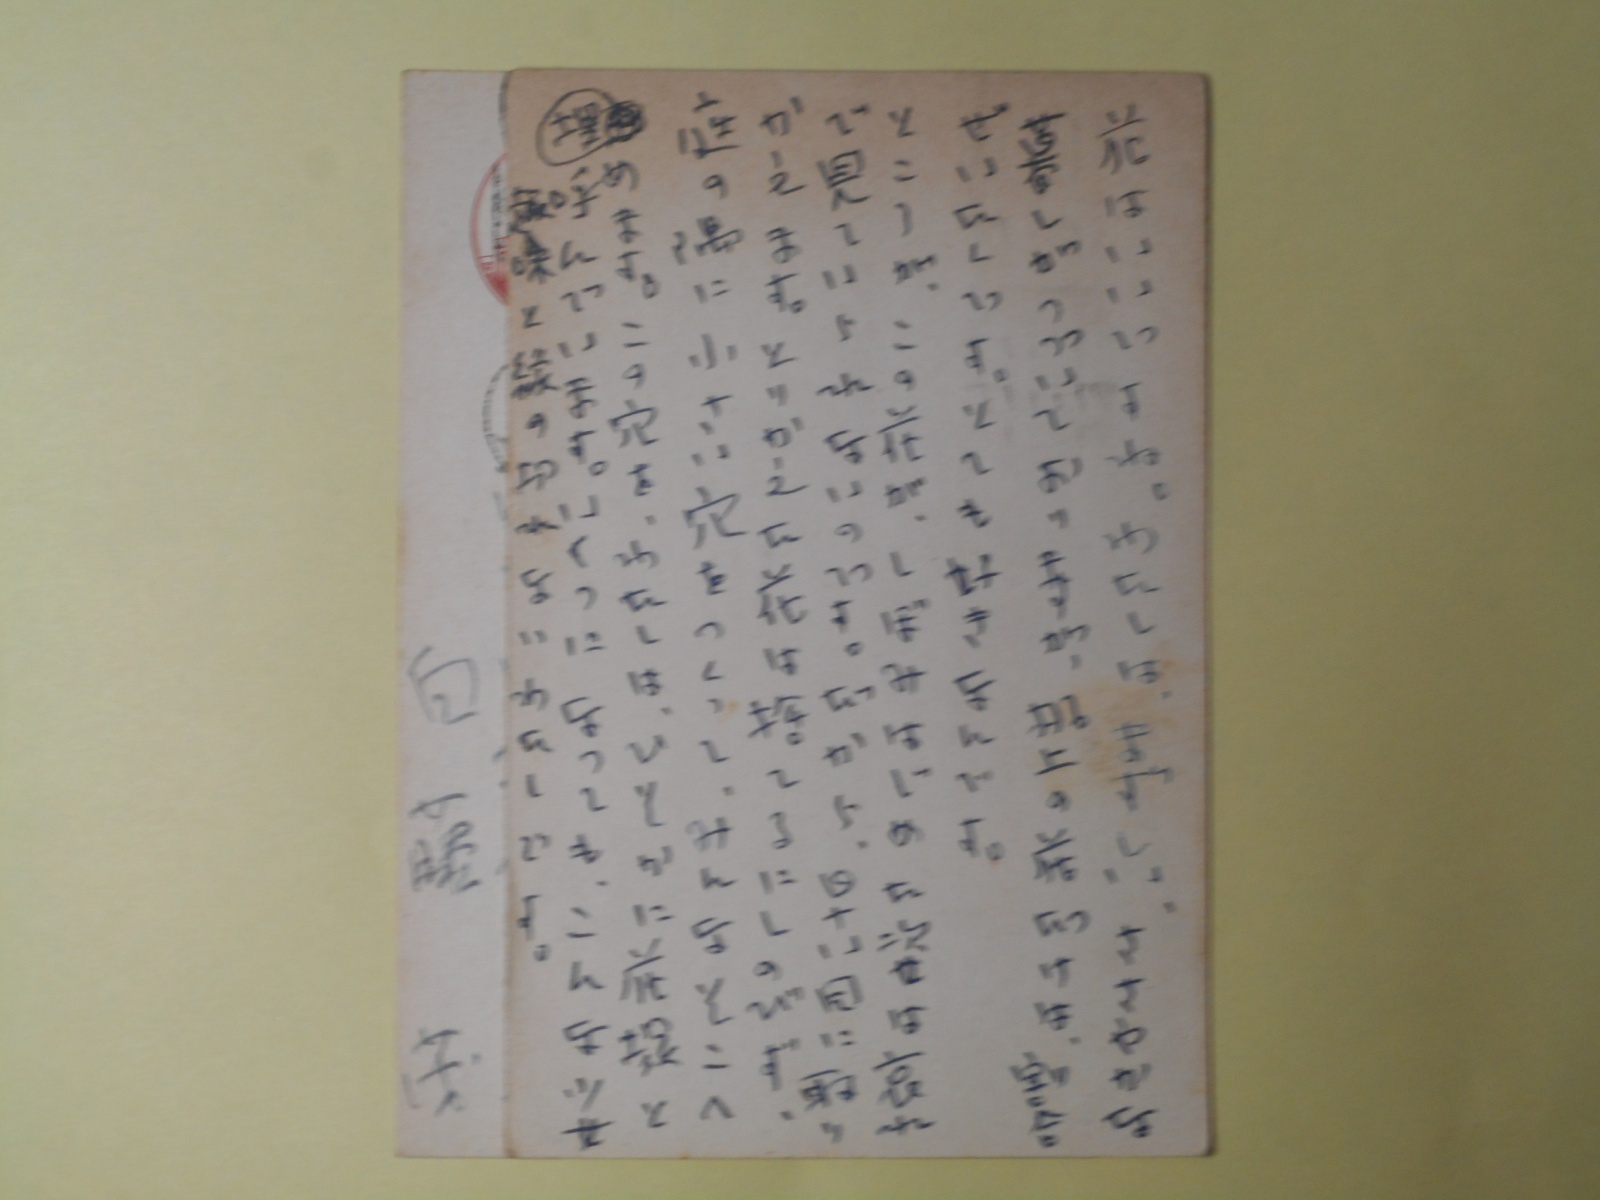 花はいいですね。わたしは、まずしい、ささやかな
暮しがつづいておりますが、机上の花だけは、割合
ぜいたくです。とても好きなんです。
ところが、この花が、しぼみはじめた次世は哀れ
で見ていられないのです。だから、四十い目に取り
かえます。とりかえた花は捨てるにしのびず、
庭の隅に小さい穴をつくって、みんなそこへ
埋めます。この穴を、わたしは、ひそかに花塚と
呼んでいます。いくつになっても、こんな少女
趣味と縁の切れないわたしです。